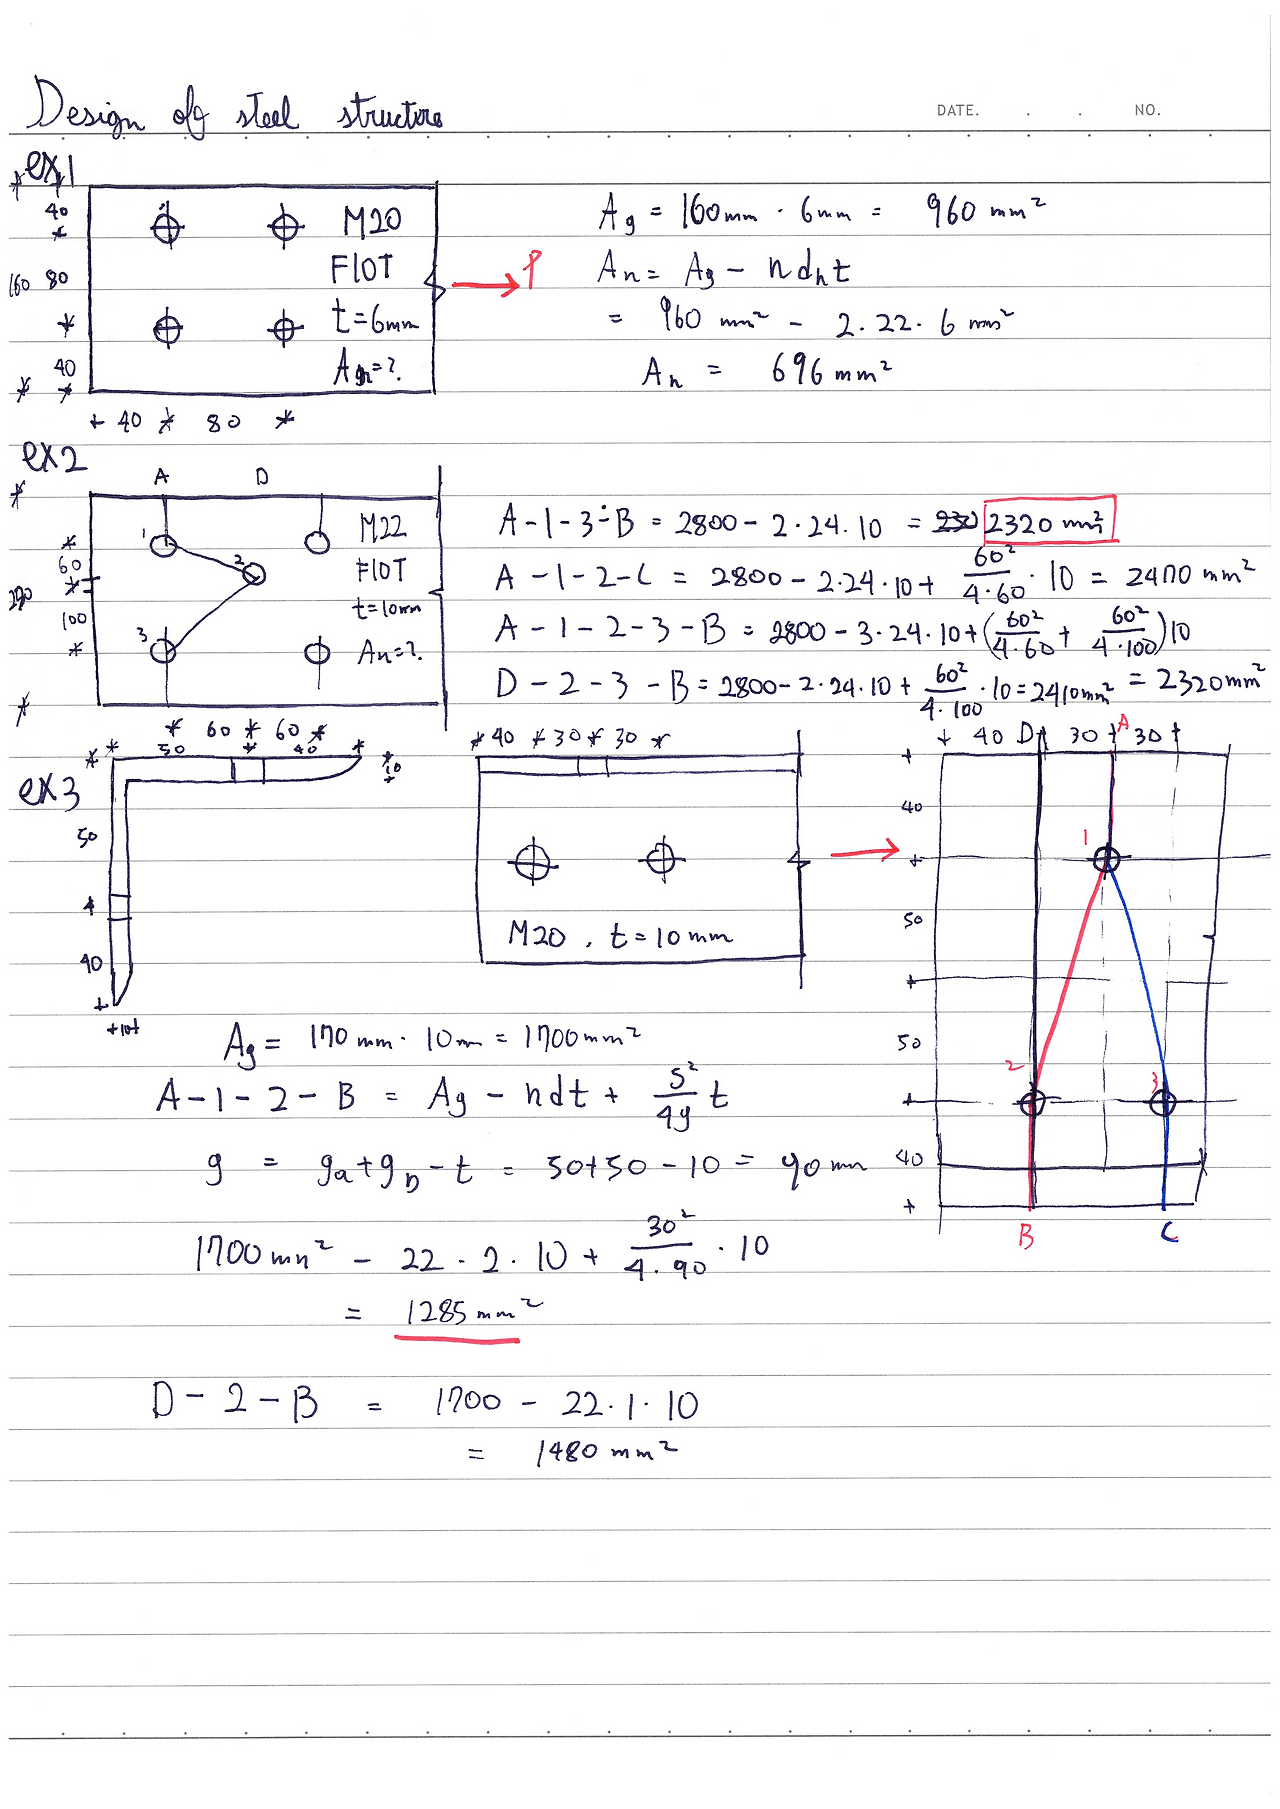 Design of steel structure
DATE. . . NO.
ex1
40
160 80
40
+ 40 * 80 *
M20
F10T
t=6mm
An=?.
P
Ag = 160mm · 6mm = 960 mm²
An = Ag - n dh t
= 960 mm² - 2·22·6 mm²
An = 696 mm²
ex2
A D
60
100
1
2
3
M22
F10T
t=10mm
An=?.
* 60 * 60 *
A-1-3-B = 2800 - 2·24·10 = 2320 mm²
A-1-2-C = 2800 - 2·24·10 + 60²/4·60 · 10 = 2470 mm²
A-1-2-3-B = 2800 - 3·24·10 + (60²/4·60 + 60²/4·100)10
D-2-3-B = 2800 - 2·24·10 + 60²/4·100 · 10 = 2410mm² = 2320mm²
ex3
* 50 * 40 *
10
50
40
+10+
* 40 * 30 * 30 *
M20 , t = 10 mm
+ 40 D 30 + A 30 +
40
1
50
50
2 3
40
B C
Ag = 170 mm · 10mm = 1700mm²
A-1-2-B = Ag - ndt + S²/4g t
g = ga+gb-t = 50+50-10 = 90mm
1700mm² - 22·2·10 + 30²/4·90 · 10
= 1285 mm²
D-2-B = 1700 - 22·1·10
= 1480 mm²